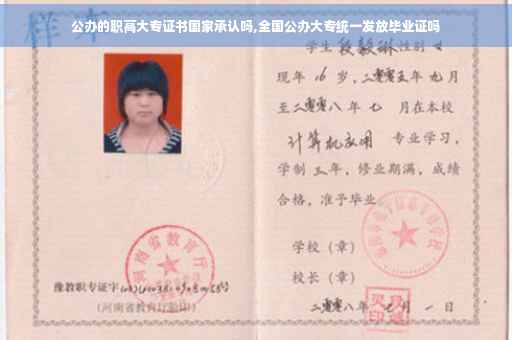 公办的职高大专证书国家承认吗,全国公办大专统一发放毕业证吗
样本
学生段毅琳性别
现年16岁,二零零五年九月
至二零零八年七月在本校
计算机应用 专业学习,
学制三年,修业期满,成绩
合格,准予毕业。
学校(章)
河南省教育厅
校长(章)
豫教职专证字
(河南省教育厅验印)
二零零八年七月一日